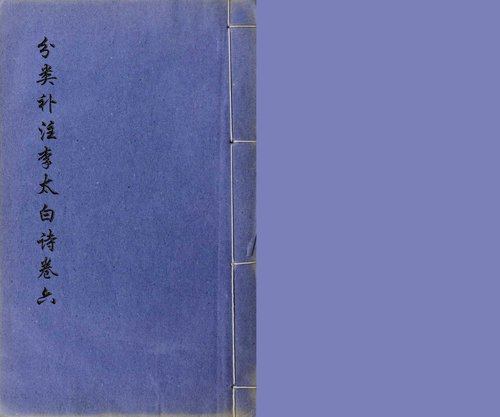 分类补注李太白诗卷六